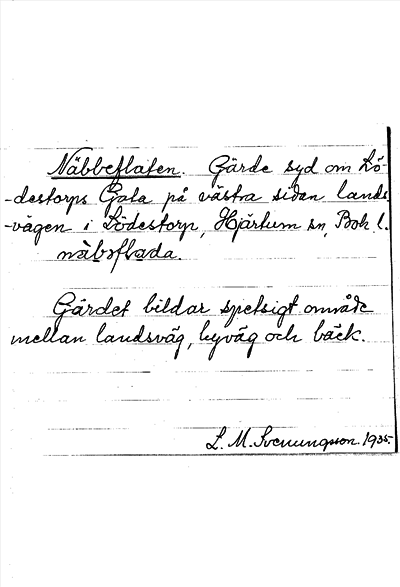 Näbbeflaten. Gärde syd om Lö-
-destorps Gata på västra sidan lands
-vägen i Lödestorp, Hjärtum sn, Boh l.
näbɔflada.
Gärdet bildar spetsigt område
mellan landsväg, byväg och bäck.
L. M. Svenungsson. 1935-